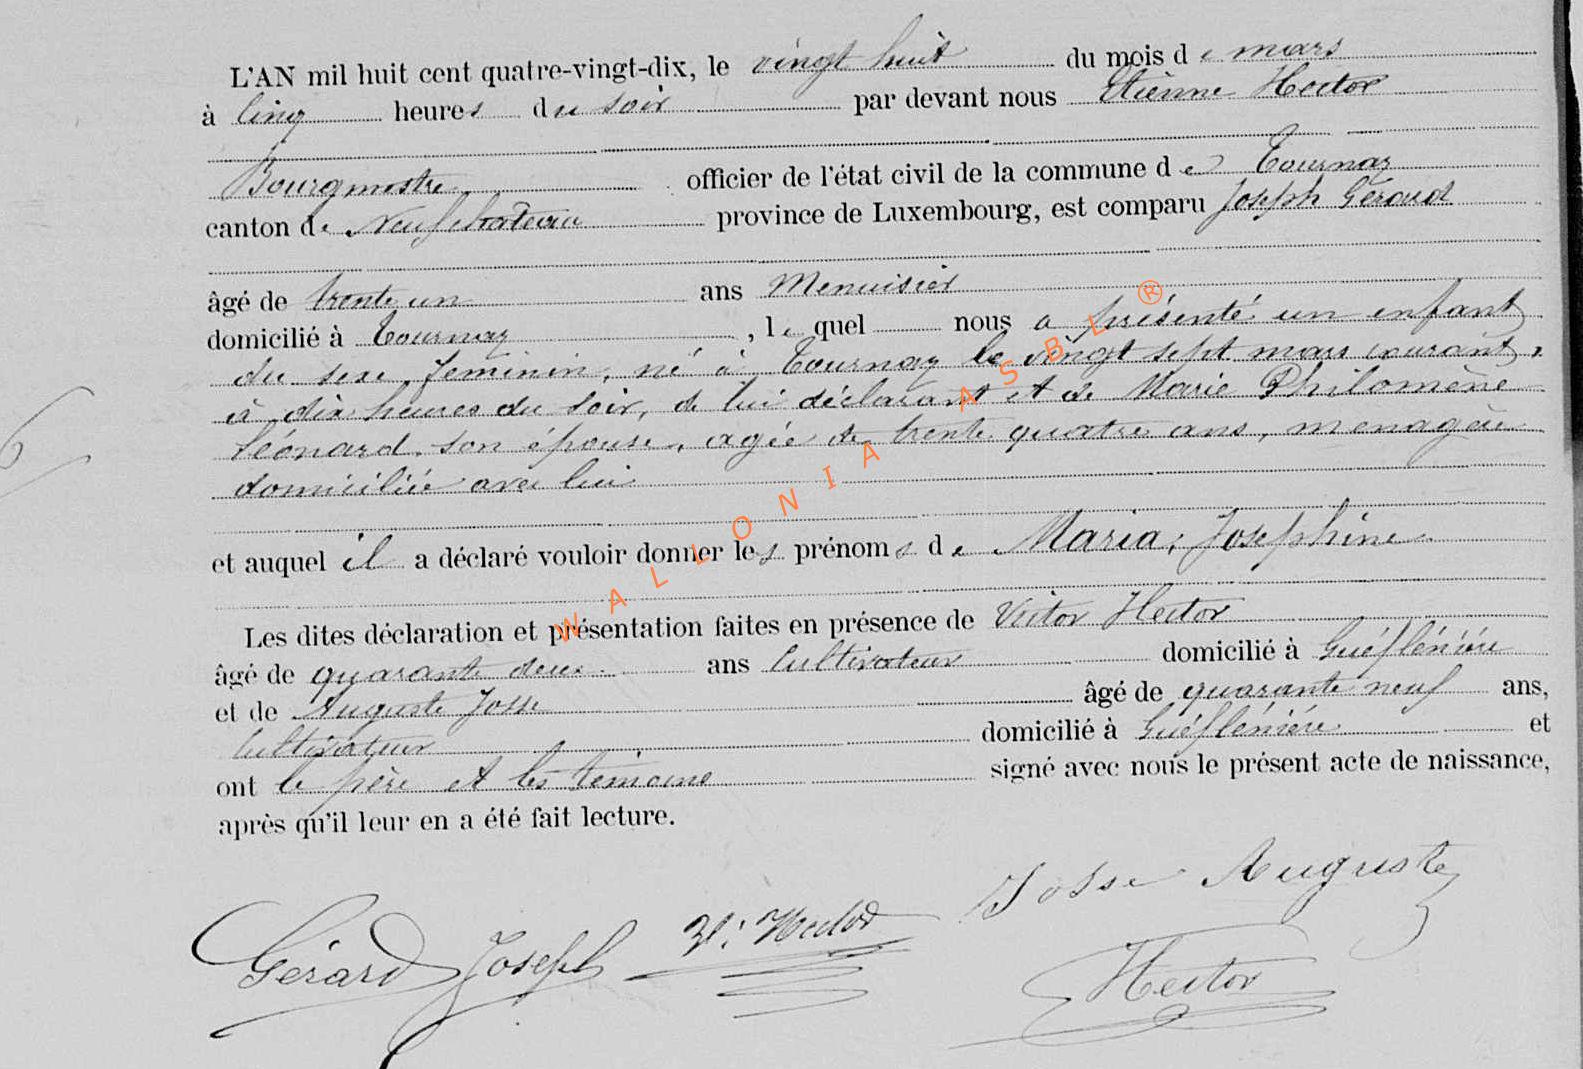 L'AN mil huit cent quatre-vingt-dix, le vingt huit du mois de mars
à Cinq heures du soir par devant nous Etienne Hector
Bourgmestre officier de l'état civil de la commune de Tournay
canton de Neufchateau province de Luxembourg, est comparu Joseph Gérard
âgé de trente un ans Menuisier
domicilié à Tournay, le quel nous a présenté un enfant
du sexe feminin, né à Tournay le vingt sept mars courant,
à dix heures du soir, de lui déclarant et de Marie Philomène
Léonard, son épouse, agée de trente quatre ans, menagère
domiciliée avec lui
et auquel il a déclaré vouloir donner les prénoms de Maria, Josephine
Les dites déclaration et présentation faites en présence de Victor Hector
âgé de quarante deux ans Cultivateur domicilié à
et de Auguste Josse âgé de quarante neuf ans,
Cultivateur domicilié à et
ont le père et les témoins signé avec nous le présent acte de naissance,
après qu'il leur en a été fait lecture.
Josse Auguste
Gérard Joseph V. Hector
Hector
WALLONIA ASBL ®
6